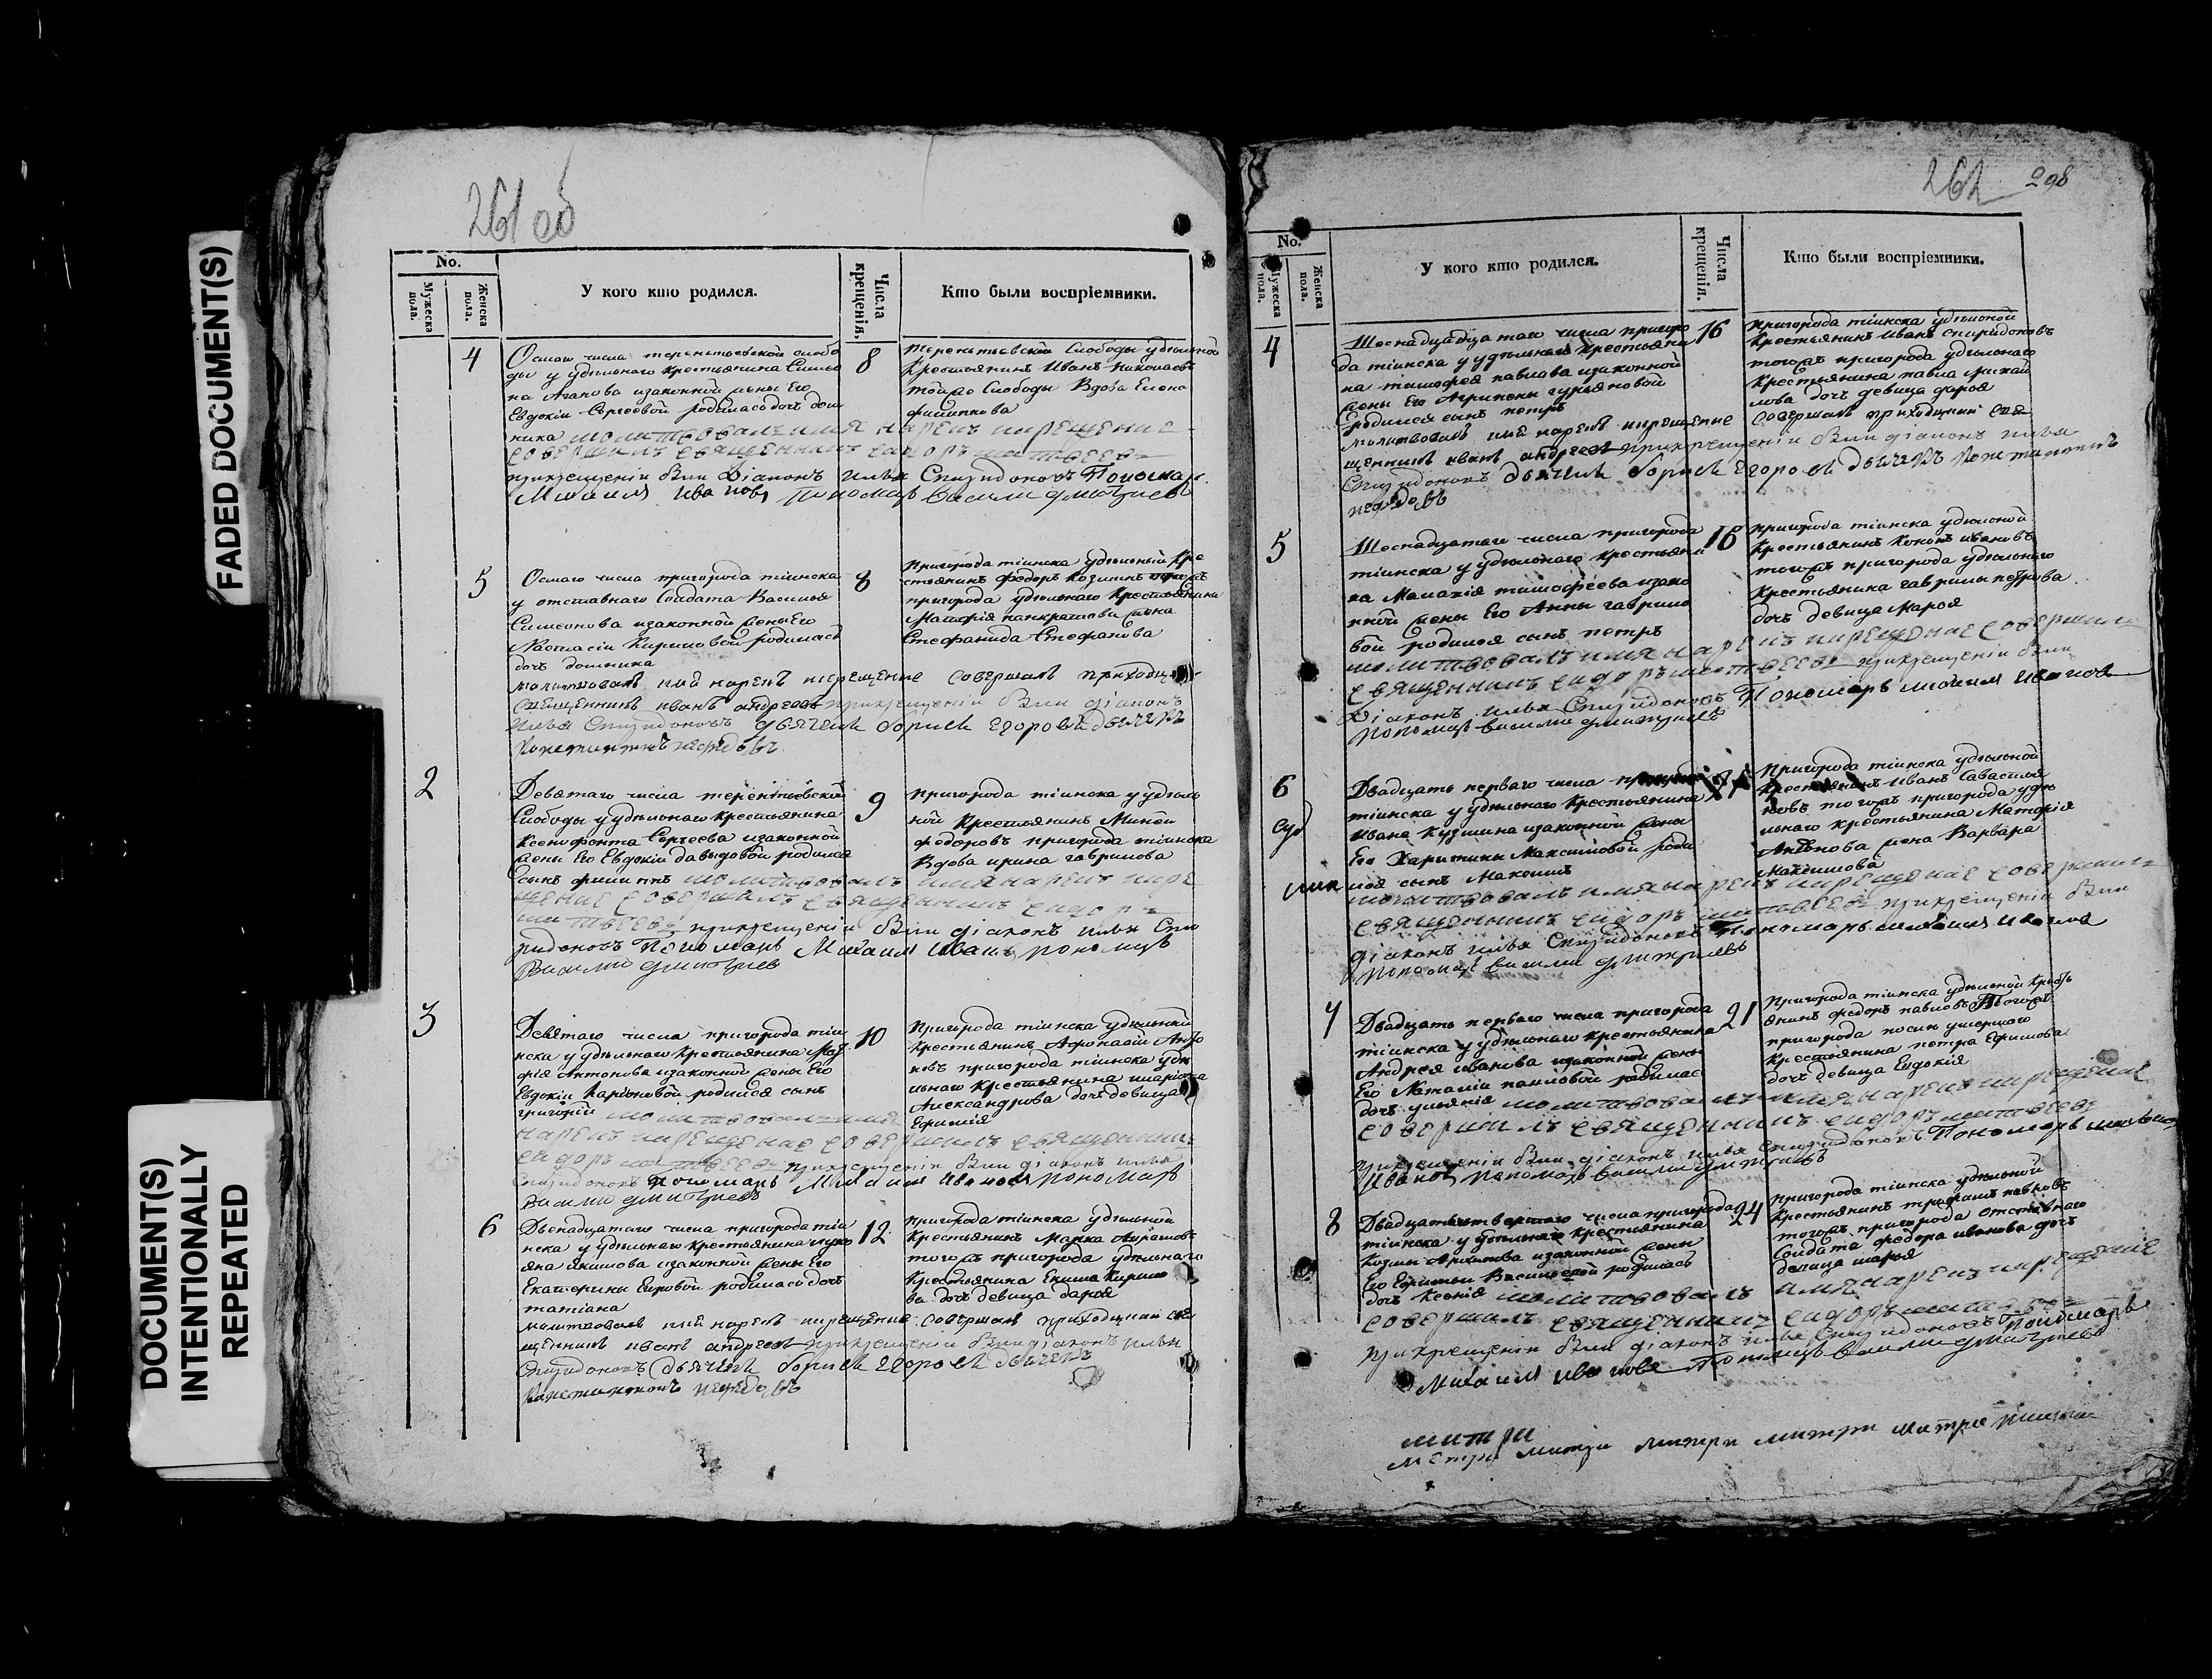 FADED DOCUMENT(S)
DOCUMENT(S)
INTENTIONALLY
REPEATED
261 об
No.
Мужеска пола.
Женска пола.
У кого кто родился.
Числа крещенія.
Кто были воспріемники.
4
Осмаго числа терентьевской слобо
ды у удѣльнаго крестьянина
на Агапова изаконной жены Его
Евдокіи Сергеевой родилась дочь дом
ника молитвовалъ имя нарекъ икрещение
совершалъ священникъ сидоръ матвеевъ
прикрещеніи были діаконъ илья Спиридоновъ Пономарь
Михаилъ Ивановъ пономарь василий дмитриевъ
8
терентьевской Слободы удѣльной
крестьянинъ Иванъ Николаевъ
тойже Слободы Вдова Елена
филипова
5
Осмаго числа пригорода тіинска
у отставнаго Солдата Василья
Симеонова изаконной жены Его
Настасіи Кириловой родилась
дочь домника
молитвовалъ имя нарекъ икрещение совершалъ приходцкій
священникъ иванъ андреевъ прикрещеніи были діаконъ
Илья Спиридоновъ дьячекъ борисъ Егоровъ дьячекъ
Константинъ нефедовъ
8
Пригорода тіинска удѣльный кре
стьянинъ федоръ Козминъ тогожъ
пригорода удѣльнаго крестьянина
Матфія панкратова жена
Стефанида Стефанова
2
Девятаго числа терентьевской
Слободы у удѣльнаго крестьянина
Ксенофонта Сергеева изаконной
жены Его Евдокіи давыдовой родился
сынъ филиппъ молитвовалъ имя нарекъ икре
щение совершалъ священникъ сидоръ
матвеевъ прикрещеніи были діаконъ илья Спи
ридоновъ Пономарь Михаилъ Ивановъ пономарь
Василий дмитриевъ
9
пригорода тіинска у удѣль
ной крестьянинъ Миней
федоровъ пригорода тіинска
Вдова ирина гаврилова
3
Девятаго числа пригорода тіи
нска у удѣльнаго крестьянина Мат
фія Антонова изаконной жены Его
Евдокіи Ларіоновой родился сынъ
григорій молитвовалъ имя
нарекъ икрещение совершалъ священникъ
сидоръ матвеевъ прикрещеніи были діаконъ илья
Спиридоновъ Пономарь Михаилъ Ивановъ пономарь
Василий дмитриевъ
10
Пригорода тіинска удѣльный
крестьянинъ Афонасій Анто
новъ пригорода тіинска удѣ
льнаго крестьянина
Александрова дочь девица
Ефимія
6
Двенадцатаго числа пригорода тіи
нска у удѣльнаго крестьянина луко
яна якимова изаконной жены Его
Екатерины Егоровой родилась дочь
татіана
молитвовалъ имя нарекъ икрещение совершалъ приходцкій свя
щенникъ иванъ андреевъ прикрещеніи были діаконъ илья
Спиридоновъ дьячекъ борисъ Егоровъ дьячекъ
Константинъ нефедовъ
12
пригорода тіинска удѣльной
крестьянинъ Марка Абрамовъ
тогожъ пригорода удѣльнаго
крестьянина Екима Кирило
ва дочь девица дарья
262 298
No.
Мужеска пола.
Женска пола.
У кого кто родился.
Числа крещенія.
Кто были воспріемники.
4
Шеснадцатаго числа пригоро
да тіинска у удѣльнаго крестьяни
на тимофея павлова изаконной
жены Его Агрипены гурьяновой
родился сынъ петръ
молитвовалъ имя нарекъ икрещение
щенникъ иванъ андреевъ прикрещеніи были діаконъ илья
Спиридоновъ дьячекъ борисъ Егоровъ дьячекъ Константинъ
нефедовъ
16
пригорода тіинска удѣльной
крестьянинъ Иванъ Спиридоновъ
тогожъ пригорода удѣльнаго
крестьянина павла михай
лова дочь девица дарья
совершалъ приходцкий свя
5
Шеснадцатаго числа пригорода
тіинска у удѣльнаго крестьяни
на Малахія тимофеева изако
нной жены Его Анны гаврило
вой родился сынъ петръ
молитвовалъ имя нарекъ икрещение совершалъ
священникъ сидоръ матвеевъ прикрещеніи были
Діаконъ илья Спиридоновъ Пономарь михаилъ Ивановъ
пономарь василий дмитриевъ
16
пригорода тіинска удѣльной
крестьянинъ Кононъ ивановъ
тогожъ пригорода удѣльнаго
крестьянина гаврилы петрова
дочь девица Марья
6
Двадцать перваго числа пригорода
тіинска у удѣльнаго крестьянина
Ивана Кузмина изаконной жены
Его Харитины Максимовой роди
лся сынъ Максимъ
молитвовалъ имя нарекъ икрещение совершалъ
священникъ сидоръ матвеевъ прикрещеніи были
діаконъ илья Спиридоновъ Пономарь михаилъ Ивановъ
пономарь василий дмитриевъ
21
Пригорода тіинска удѣльной
крестьянинъ Иванъ Савастья
новъ тогожъ пригорода удѣ
льнаго крестьянина Матфія
Антонова жена Варвара
Максимова
7
Двадцать перваго числа пригорода
тіинска у удѣльнаго крестьянина
Андрея иванова изаконной жены
Его Наталіи павловой родилась
дочь ульянія молитвовалъ имя нарекъ икрещение
совершалъ священникъ сидоръ матвеевъ
прикрещеніи были діаконъ илья Спиридоновъ Пономарь михаилъ
Ивановъ пономарь василий дмитриевъ
21
Пригорода тіинска удѣльной кресть
янинъ федоръ павловъ Тогожъ
пригорода после умершаго
крестьянина петра Ефимова
дочь девица Евдокія
8
Двадцать четвертаго числа пригорода
тіинска у удѣльнаго крестьянина
Козмы Архипова изаконной жены
Его Ефимьи Васильевой родилась
дочь Ксенія молитвовалъ имя нарекъ икрещение
совершалъ священникъ сидоръ матвеевъ
прикрещеніи были діаконъ илья Спиридоновъ Пономарь
Михаилъ Ивановъ Пономарь василий дмитриевъ
24
пригорода тіинска удѣльной
крестьянинъ трофимъ павловъ
тогожъ пригорода отставнаго
Солдата федора иванова дочь
девица марья
митри
митри митри митри